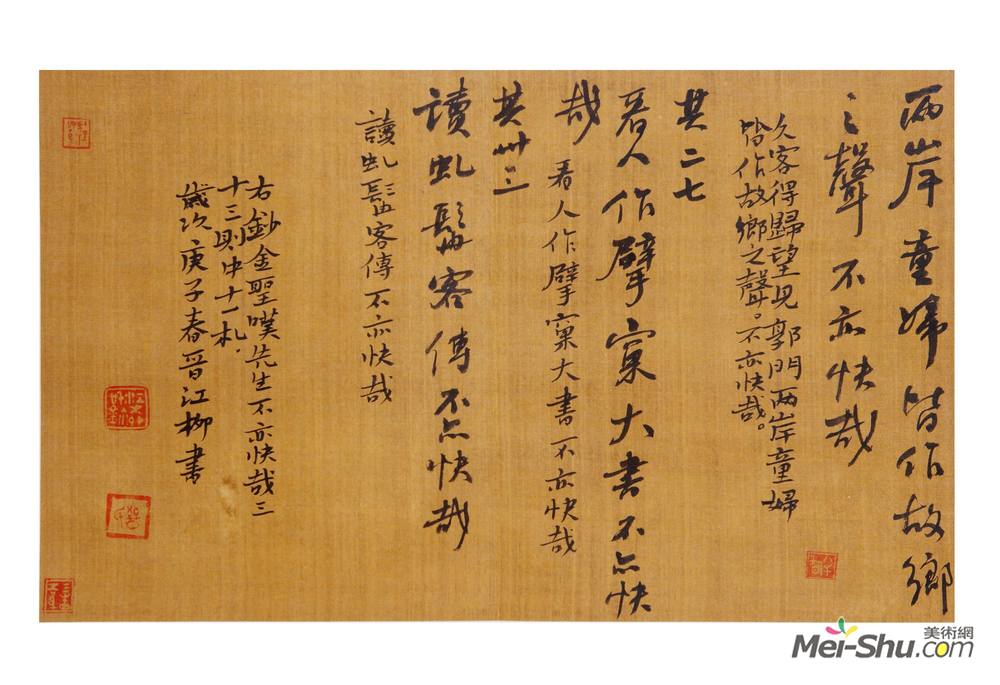 两岸童婦皆作故鄉
之聲不亦快哉
久客得歸望見郭門两岸童婦
皆作故鄉之聲。不亦快哉。
其二七
看人作擘窠大書不亦快
哉
看人作擘窠大書不亦快哉
其卅三
讀虬髯客傳不亦快哉
讀虬髯客傳不亦快哉
右鈔金聖嘆先生不亦快哉三
十三則中十一札.
歲次庚子春晉江柳書
美術網
Mei-Shu.com